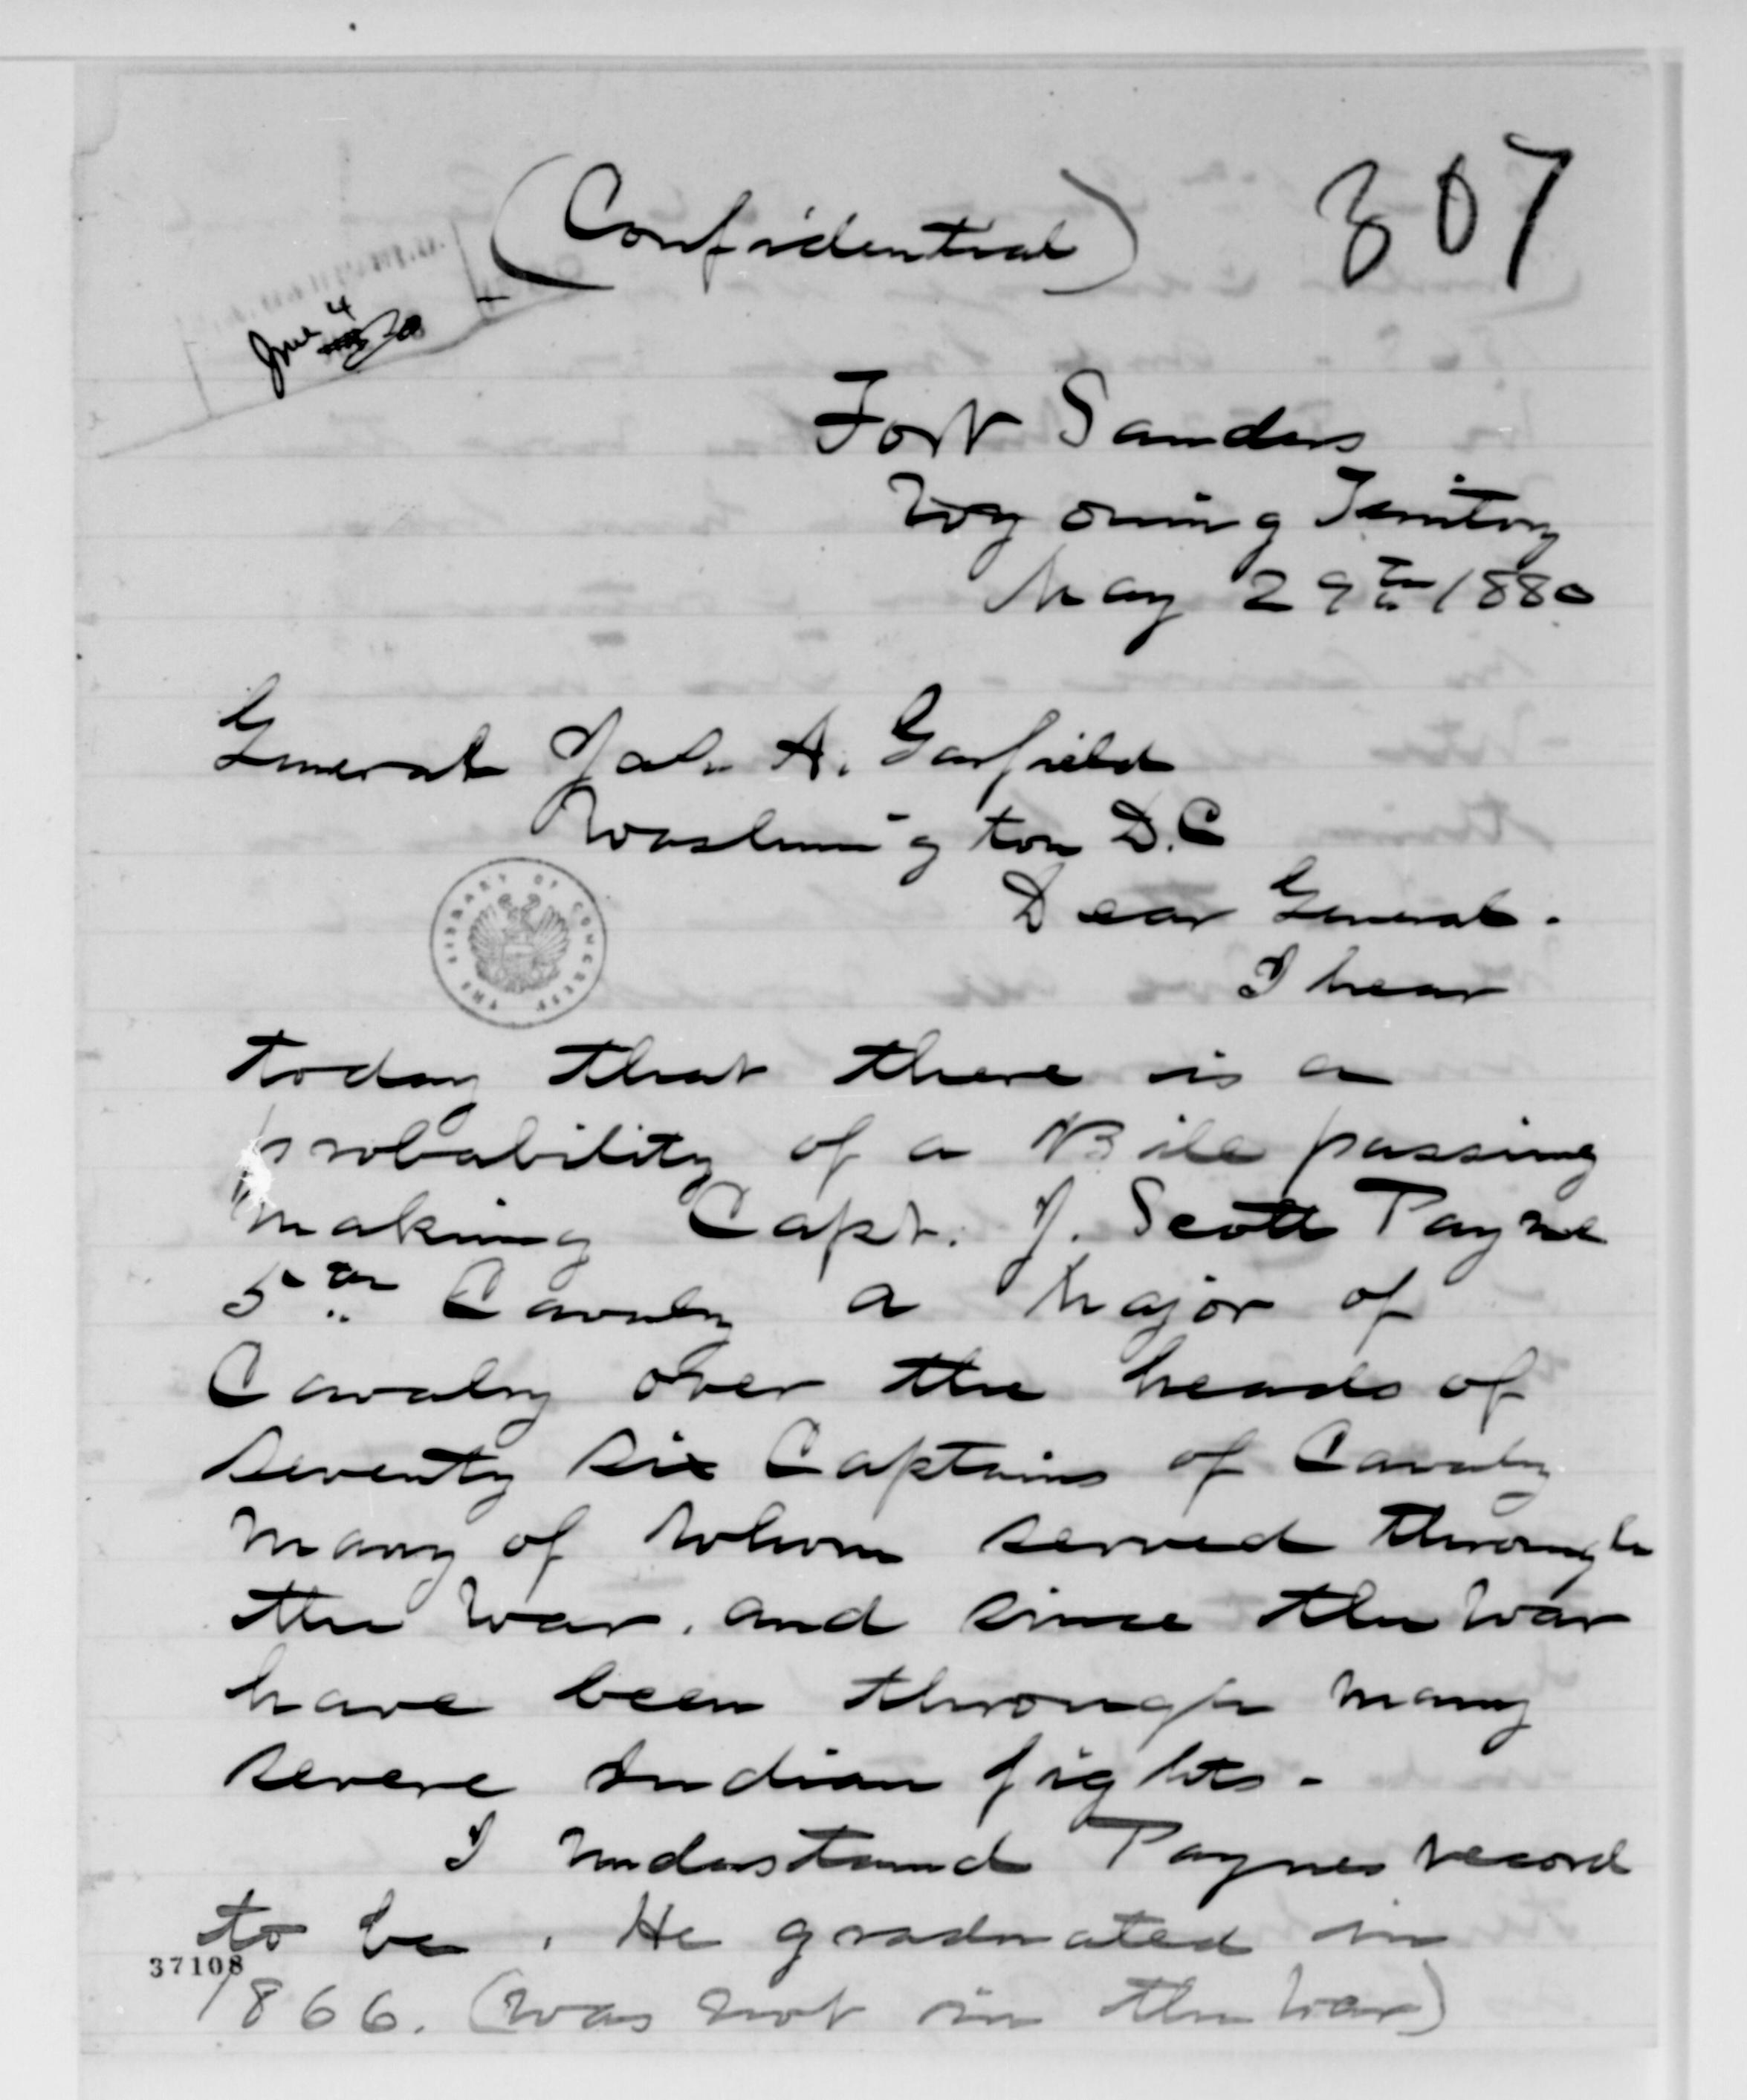 (Confidential)
307
June 4
Fort Sanders
Wyoming Territory
May 29th 1880
General Jas. A. Garfield
Washington D.C
Dear General.
THE LIBRARY OF CONGRESS
I hear
today that there is a
probability of a Bill passing
making Capt. J. Scott Payne
5th Cavalry a Major of
Cavalry over the heads of
seventy six Captains of Cavalry
many of whom served through
the War. and since the War
have been through many
severe Indian fights -
I understand Paynes record
to be. He graduated in
37108
1866. (was not in the War)